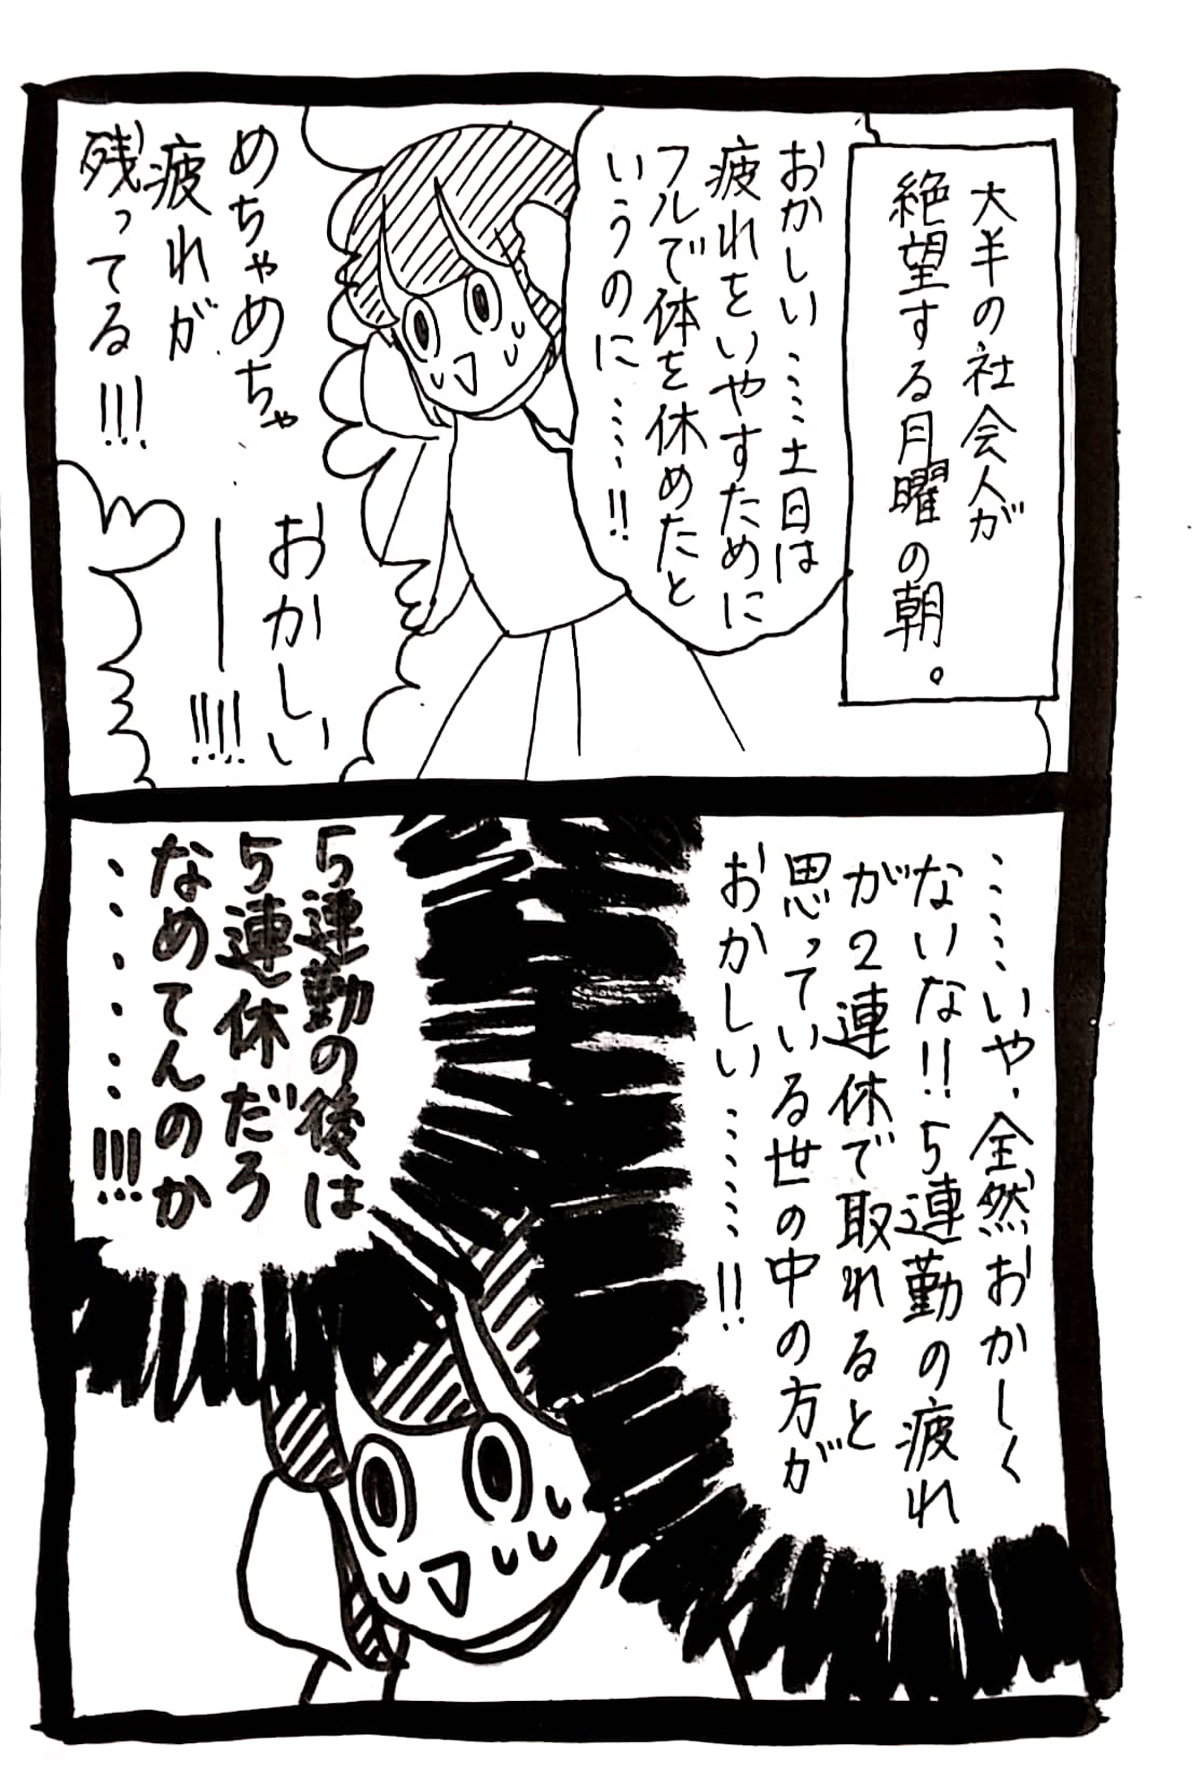 大半の社会人が
絶望する月曜の朝。
おかしい……土日は
疲れをいやすために
フルで体を休めたと
いうのに……!!
めちゃめちゃ
疲れが
残ってる!!!
おかしい
ー!!!!!
……いや、全然おかしく
ないな!!5連勤の疲れ
が2連休で取れると
思っている世の中の方が
おかしい……!!
5連勤の後は
5連休だろ
なめてんのか
……!!!!